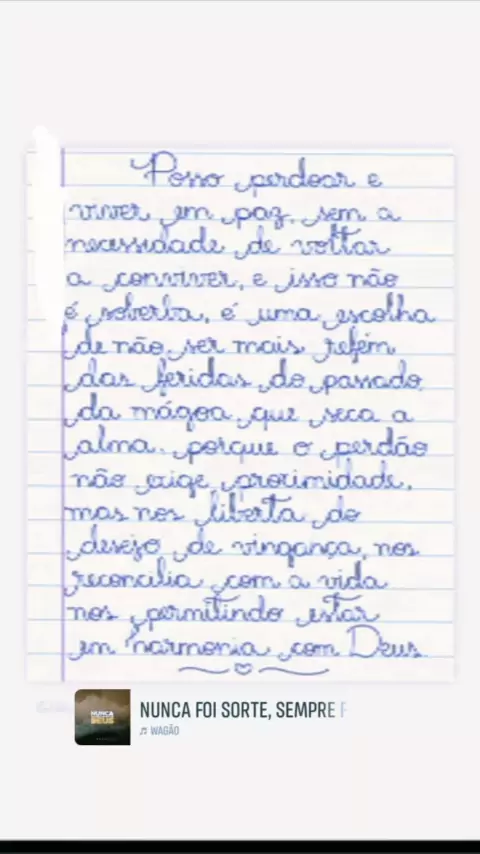 Posso perdoar e
viver em paz, sem a
necessidade de voltar
a conviver, e isso não
é soberba, é uma escolha
de não ser mais refém
das feridas do passado,
da mágoa que seca a
alma. porque o perdão
não exige proximidade,
mas nos liberta do
desejo de vingança, nos
reconcilia com a vida
nos permitindo estar
em harmonia com Deus.
NUNCA FOI SORTE, SEMPRE F
♬ WAGÃO